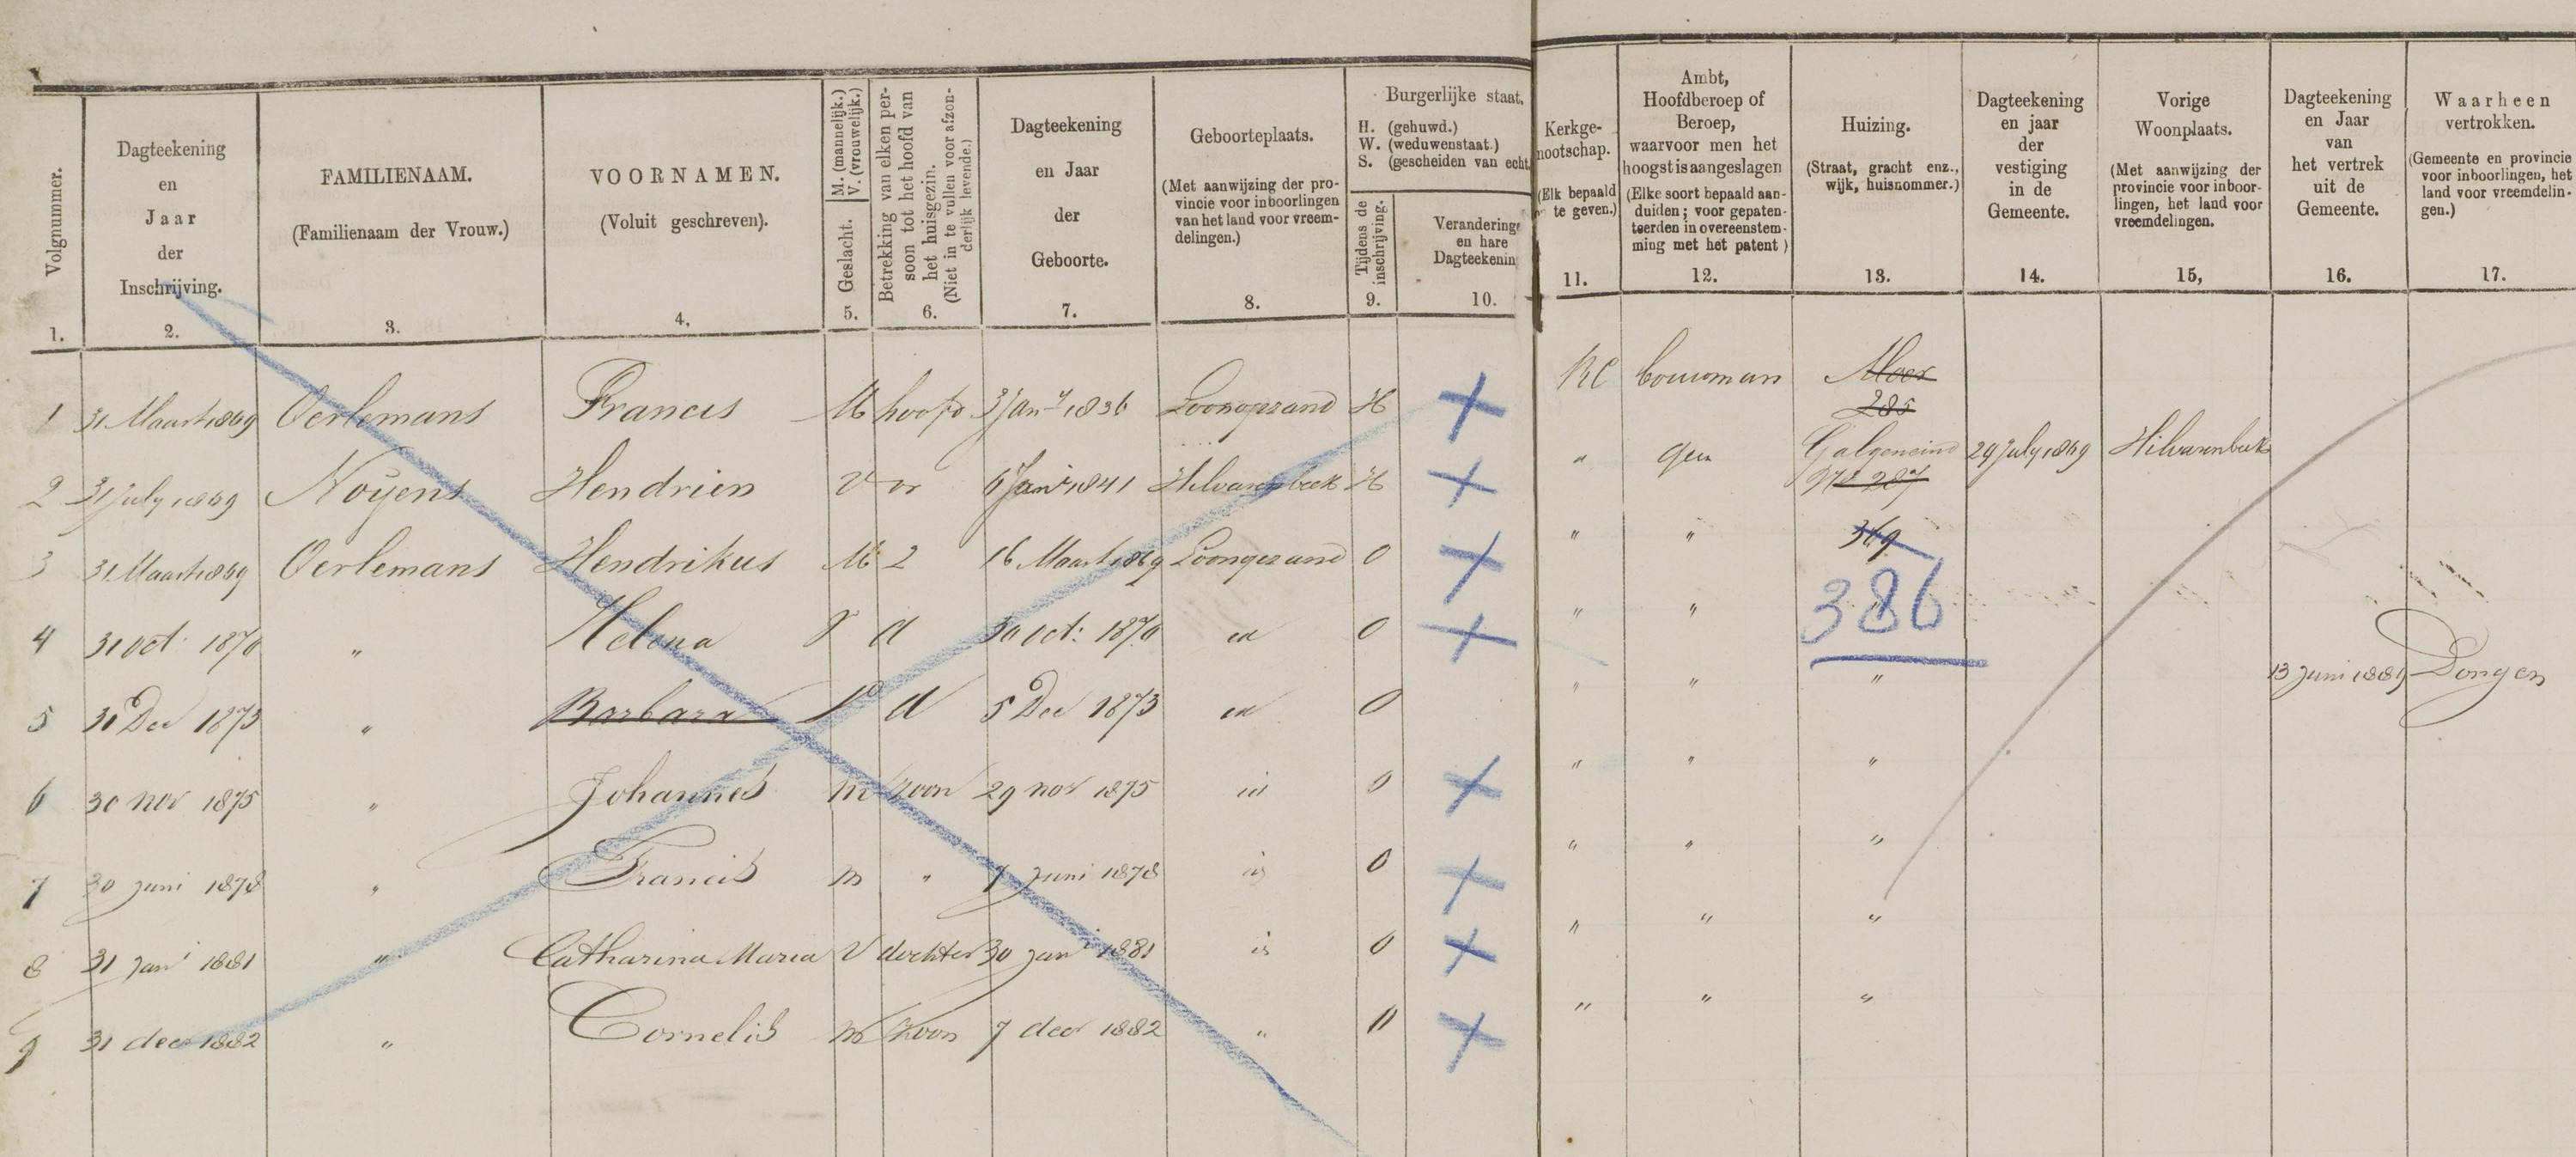 Volgnummer.
1.
Dagteekening
en
Jaar
der
Inschrijving.
2.
FAMILIENAAM.
(Familienaam der Vrouw.)
3.
VOORNAMEN.
(Voluit geschreven).
4.
M. (mannelijk.)
V. (vrouwelijk.)
Geslacht.
5.
Betrekking van elken per-
soon tot het hoofd van
het huisgezin.
(Niet in te vullen voor afzon-
derlijk levende.)
6.
Dagteekening
en Jaar
der
Geboorte.
7.
Geboorteplaats.
(Met aanwijzing der pro-
vincie voor inboorlingen
van het land voor vreem-
delingen.)
8.
Burgerlijke staat.
H. (gehuwd.)
W. (weduwenstaat.)
S. (gescheiden van echt
Tijdens de
inschrijving.
9.
Verandering
en hare
Dagteekenin
10.
Kerkge-
nootschap.
(Elk bepaald
te geven.)
11.
Ambt,
Hoofdberoep of
Beroep,
waarvoor men het
hoogst is aangeslagen
(Elke soort bepaald aan-
duiden; voor gepaten-
teerden in overeenstem-
ming met het patent)
12.
Huizing.
(Straat, gracht enz.,
wijk, huisnommer.)
13.
Dagteekening
en jaar
der
vestiging
in de
Gemeente.
14.
Vorige
Woonplaats.
(Met aanwijzing der
provincie voor inboor-
lingen, het land voor
vreemdelingen.
15,
Dagteekening
en Jaar
van
het vertrek
uit de
Gemeente.
16.
Waarheen
vertrokken.
(Gemeente en provincie
voor inboorlingen, het
land voor vreemdelin-
gen.)
17.
1 31 Maart 1869 Oerlemans Francis M hoofd 3 Jany 1836 Loonopzand H RC bouwman Moer
285
2 31 july 1869 Noÿens Hendrien V vr 6 Jani 1841 Hilvarenbeek H " geen Galgeneind 29 July 1869 Hilvarenbeek
No 287
3 31 Maart 1869 Oerlemans Hendrikus M 2 16 Maart 1869 Loonopzand O " " 369
4 31 Oct: 1870 " Helena V d 30 oct: 1870 id O " " 386
5 31 Dec 1873 " Barbara V d 5 Dec 1873 id O " " " 13 Juni 1889 Dongen
6 30 nov 1875 " Johannes m zoon 29 nov 1875 id O " " "
7 30 juni 1878 " Francis m " 7 juni 1878 id O " " "
8 31 jani 1881 " Catharina Maria V dochter 30 jani 1881 id O " " "
9 31 dec 1882 " Cornelis m zoon 7 dec 1882 " O " " "